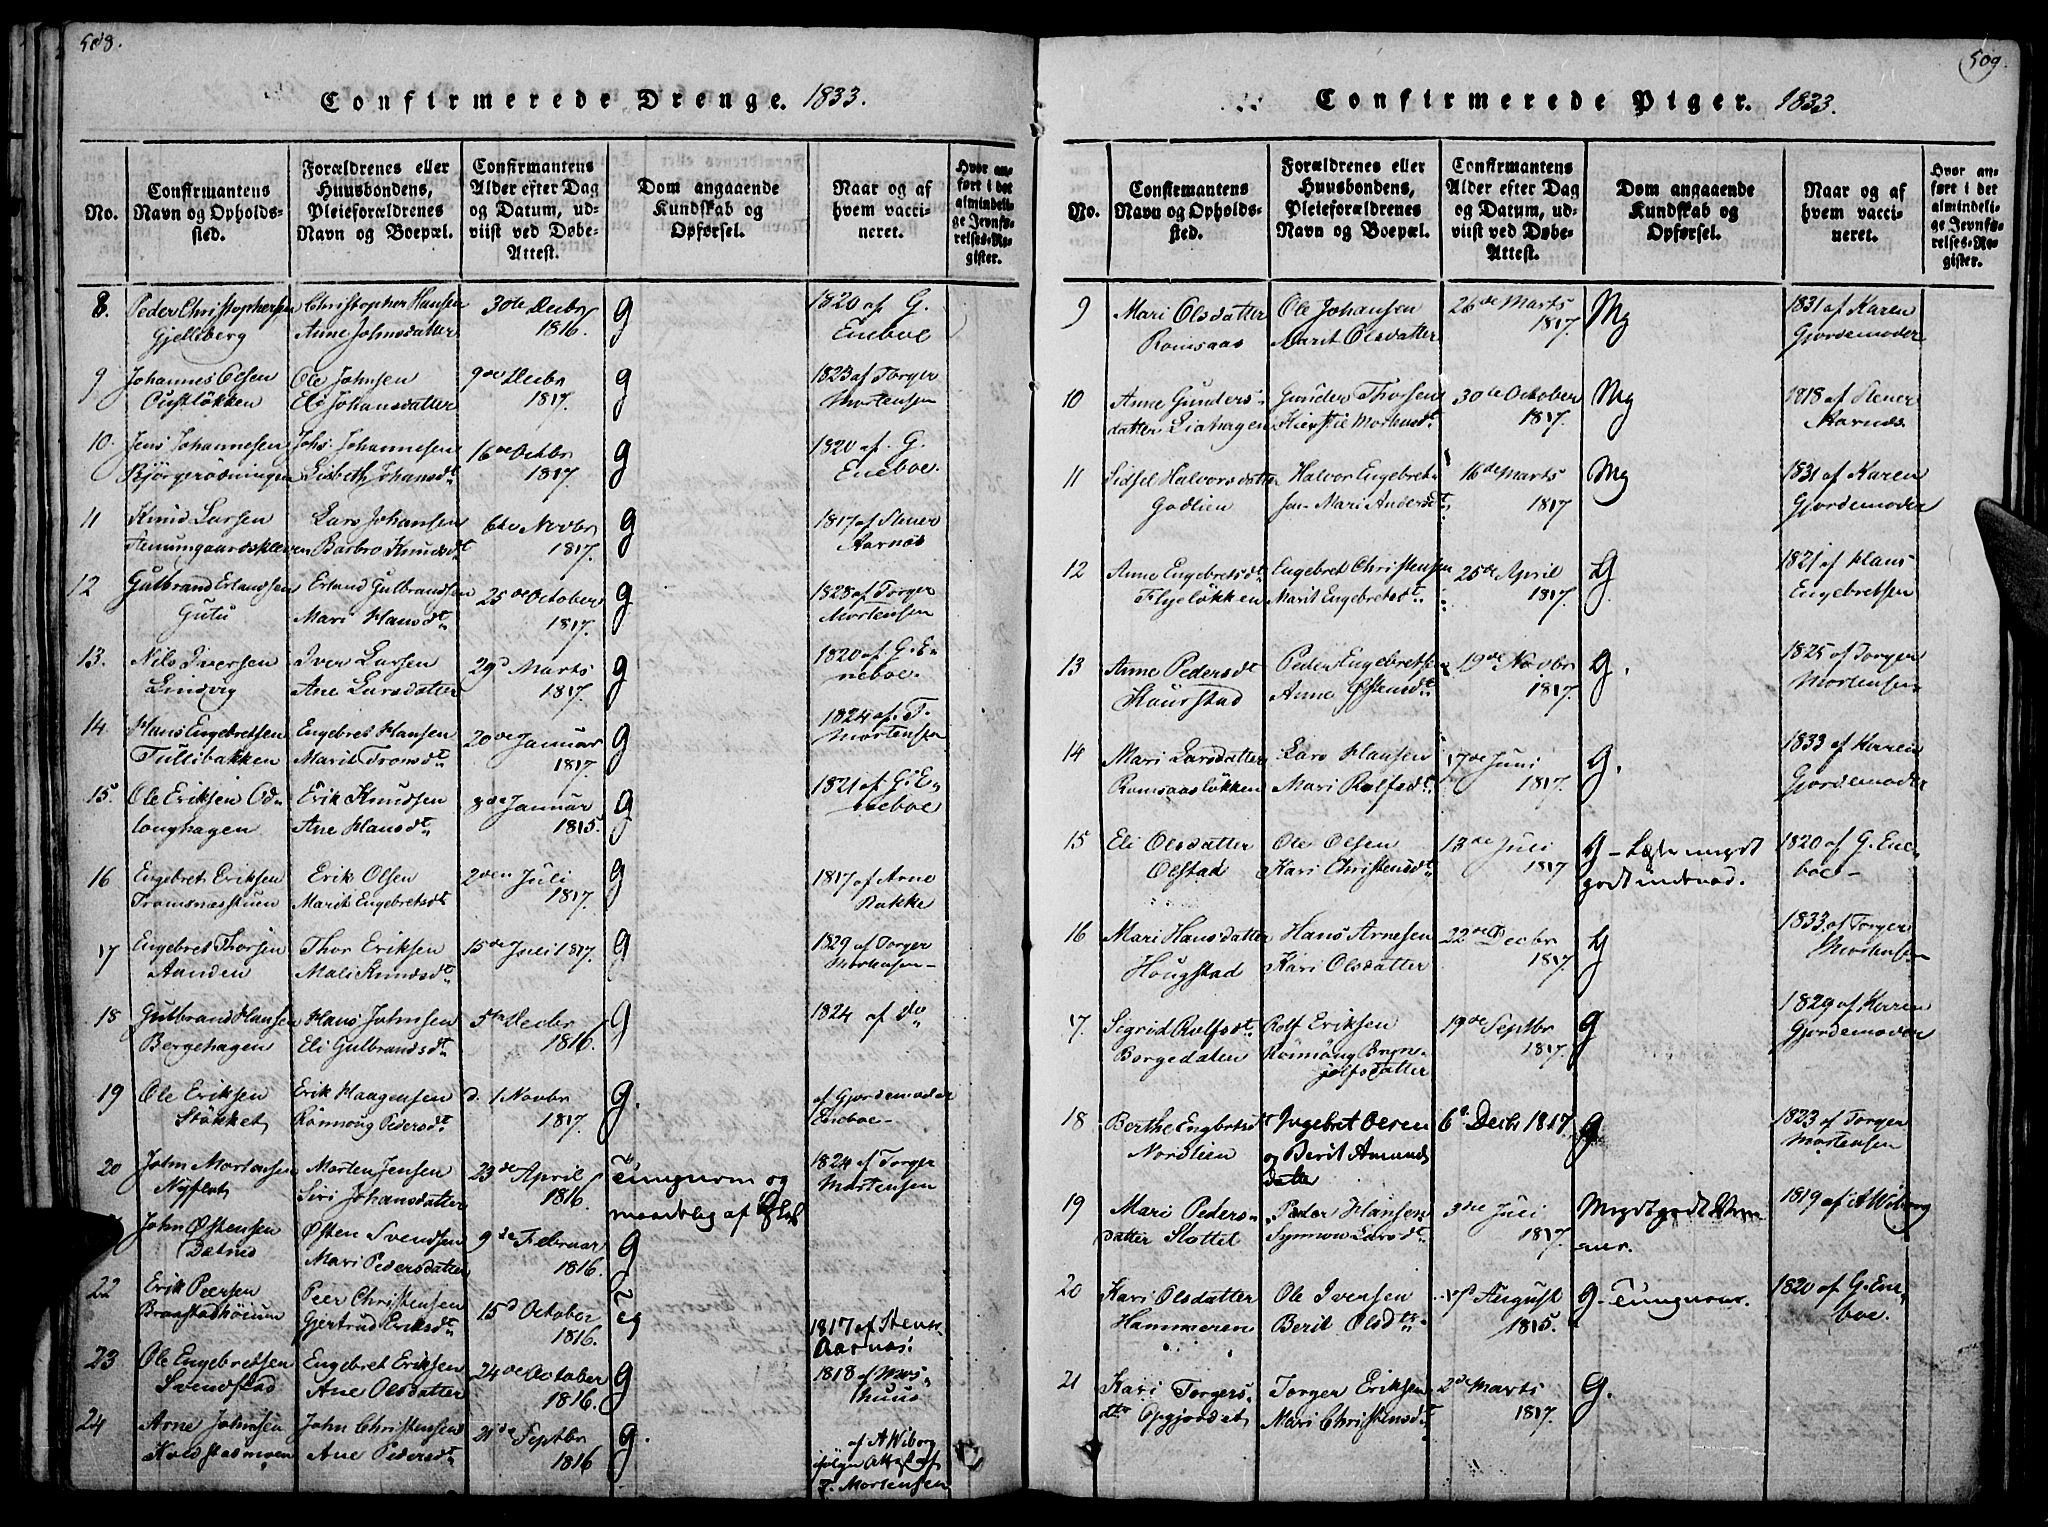 508.
Confirmerede Drenge. 1833.
No.
Confirmantens Navn og Opholdssted.
Forældrenes eller Huusbondens, Pleieforældrenes Navn og Boepæl.
Confirmantens Alder efter Dag og Datum, udviist ved Døbe-Attest.
Dom angaaende Kundskab og Opførsel.
Naar og af hvem vaccineret.
Hvor anført i det almindelige Jevnførelses-Register.
8. Peder Christophersen Christopher Hansen 30te Decbr g 1820 af G.
Gjellsberg Anne Johnsdatter 1816. Eneboe
9 Johannes Olsen Ole Johnsen 9de Decbr g 1823 af Torger
Ouslökken Eli Johansdatter 1817. Mortensen
10. Jens Johannesen Johs. Johannesen 16de Octbr g 1820 af G.
Björgerödningen Lisbeth Johansdt 1817. Eneboe.
11 Knud Larsen Lars Johansen 6te Novbr g 1817 af Stener
Barbro Knudsdt 1817. Aarnæs
12 Gulbrand Erlandsen Erland Gulbrandsen 25de October g 1823 af Torger
Gutu Mari Hansdt 1817. Mortensen
13. Nils Iversen Iver Larsen 29d Marts g 1820 af G. E-
Lindvig Ane Larsdatter 1817. neboe.
14 Hans Engebretsen Engebret Hansen 20de Januar g 1824 af T.
Tullibakken Marit Tronsdt 1817. Mortensen
15. Ole Eriksen Od- Erik Knudsen 8de Januar g 1821 af G. E-
longhagen Ane Hansdt 1815. neboe
16 Engebret Eriksen Erik Olsen 2den Juli g 1817 af Arne
Tromsnæsstuen Marit Engebretsdt 1817. Bakke
17 Engebret Thorsen Thor Eriksen 15de Juli 1817. g 1829 af Torger
Aanden Mali Knudsdt Mortensen-
18 Gulbrand Hansen Hans Johnsen 5te Decbr g 1824 af do
Bergehagen Eli Gulbrandsdt 1816.
19 Ole Eriksen Erik Haagensen d. 1 Novbr g. af Gjordemoder
Stökket Rönnoug Pedersdt 1817. Eneboe-
20 John Mortensen Morten Jensen 23de April Tungnem og 1824 af Torger
Nyflot Siri Johansdatter 1816. maadelig af Mortensen
John Østensen Østen Svendsen 9de Februar g
Mari Pedersdatter 1816.
22 Erik Peersen Peer Christensen 15d October Teg 1817 af Stener
Gjertrud Eriksdt 1816. Aarnæs.
23 Ole Engebretsen Engebret Eriksen 24de October g 1818 af Mos-
Svendstad Ane Olsdatter 1816. huus
24 Arne Johnsen John Christensen 21de Septbr g. af A Wiborg
Koldstadmoen Ane Pedersdt 1816 ifølge Attest af
T. Mortensen
509.
Confirmerede Piger. 1833.
No.
Confirmantens Navn og Opholdssted.
Forældrenes eller Huusbondens, Pleieforældrenes Navn og Boepæl.
Confirmantens Alder efter Dag og Datum, udviist ved Døbe-Attest.
Dom angaaende Kundskab og Opførsel.
Naar og af hvem vaccineret.
Hvor anført i det almindelige Jevnførelses-Register.
9 Mari Olsdatter Ole Johansen 26de Marts Mg 1831 af Karen
Romsaas Marit Olsdatter 1817. Gjordemoder
10 Anne Gunders- Gunder Thorsen 30te October Mg 1818 af Stener
datter Liahagen Kirstie Mortensdt 1817. Aarnæs.
11 Sidsel Halvorsdatter Halvor Engebret- 16de Marts Mg 1831 af Karen
Godlien sen Mari Andersdt 1817 Gjordemoder
12 Anne Engebretsdt Engebret Christensen 25de April g 1821 af Hans
Flyelökken Marit Engebretsdt 1817. Engebretsen
13 Anne Pedersdt Peder Engebretsen 19de Novbr g. 1825 af Torger
Kaurstad Anne Østensdt 1817. Mortensen
14 Mari Larsdatter Lars Hansen 17de Juni g. 1833 af Karen
Romsaaslökken Mari Rolfsdt 1817. Gjordemoder
15 Eli Olsdatter Ole Olsen 13de Juli g - Læste meget 1820 af G. Ene-
Olstad Kari Christensdt 1817 godt indenad. boe-
16 Mari Hansdatter Hans Arnesen 22de Decbr g 1833 af Torger
Hougstad Kari Olsdatter 1817. Mortensen
17. Sigrid Rolfsdt Rolf Eriksen 19de Septbr g 1829 af Karen
Borgedalen Rönnoug Bryn- 1817. Gjordemoder
jolfsdatter
18 Berthe Engbretsdt Ingebret Olsen 6d. Decbr 1817 g 1823 af Torger
Nordlien og Berit Amunds Mortensen
datter
19 Mari Peders- Peder Hansen 3die Juli Megetgodt 1819 af A Wiborg
datter Slottet Synnow Larsdt 1817.
20 Kari Olsdatter Ole Ivensen August g - Tungnem. 1820 af G. Ene-
Hammeren Berit Olsdtr 1815. boe.
21 Kari Torgers- Torger Eriksen 2de Marts g.
dtr Opgjordet Mari Christensdt 1817.